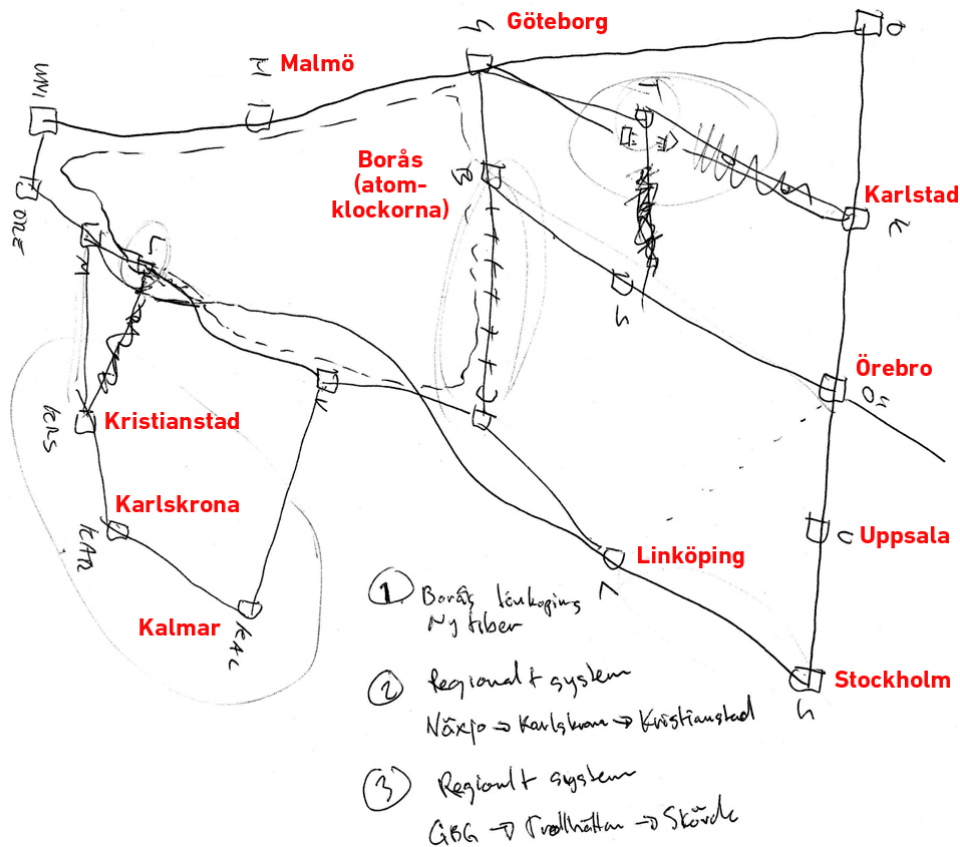 G
Göteborg
O
M
Malmö
WNI
T
Borås
(atom-
klockorna)
B
Karlstad
K
ORE
L
M
S
Örebro
Ö
K
J
KRS
Kristianstad
Karlskrona
KAR
U
Uppsala
Linköping
L
Kalmar
KAL
Stockholm
S
1 Borås Linkoping
Ny fiber
2 Regionalt system
Näxjo → Karlskron → Kristianstad
3 Regionlt system
GBG → Trollhättan → Skövde